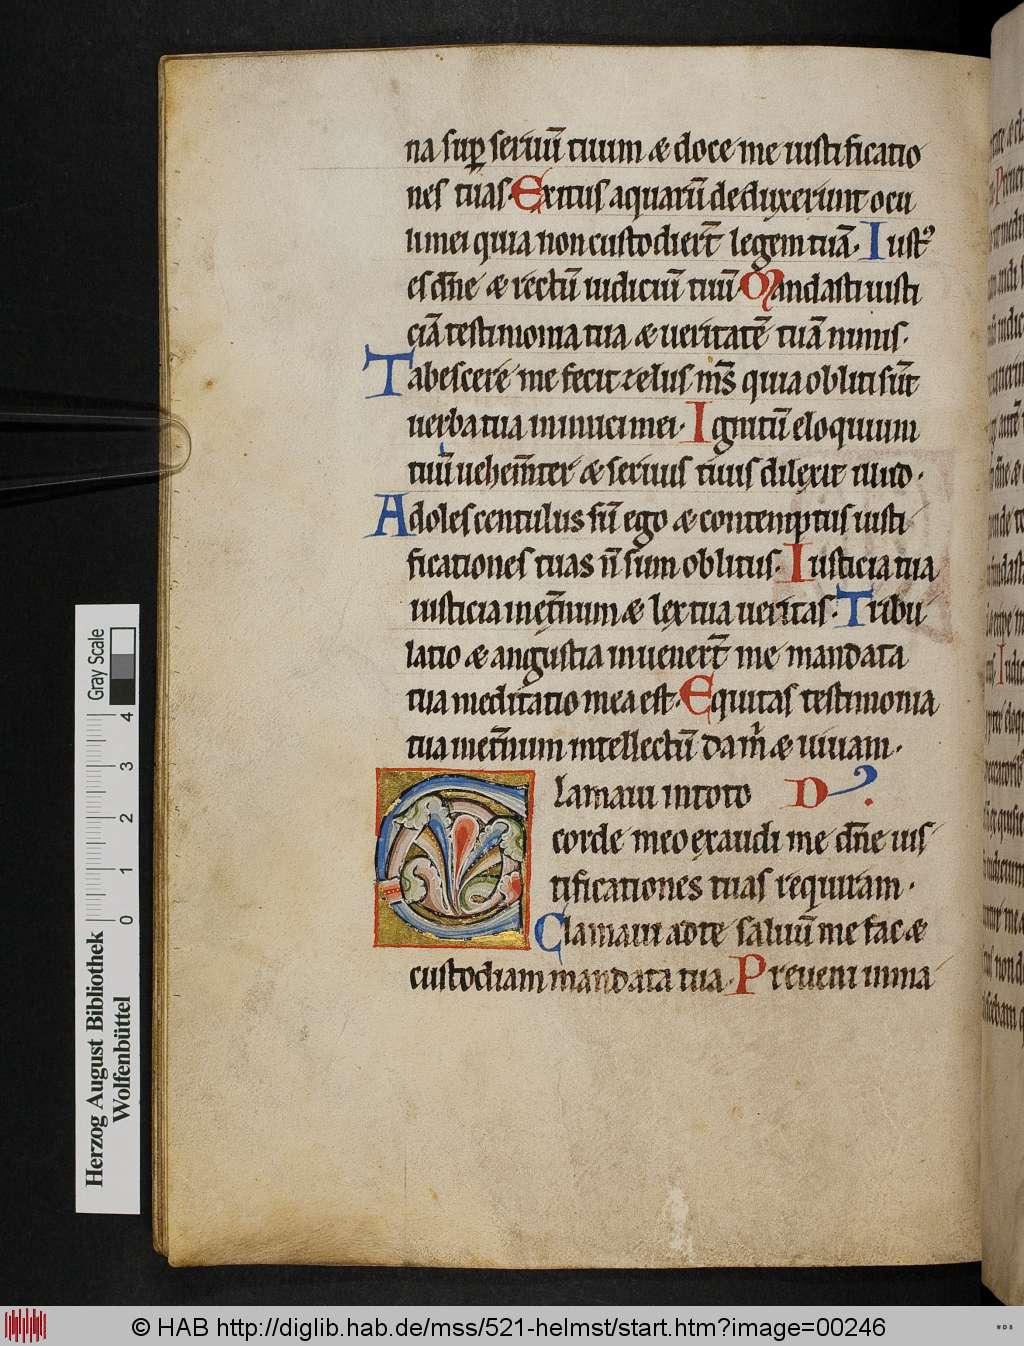 na sup̲ seruū tuum & doce me iustificatio
nes tuas. Exitus aquarū deduxerunt ocu
li mei quia non custodier̄t legem tuā. Iustꝰ
es dn̄e & rectū iudiciū tuū Mandasti iusti
ciā testimonia tua & ueritatē tuā nimis.
Tabescere me fecit zelus m̄s quia obliti sūt
uerba tua inimici mei. Ignitū eloquium
tuū uehem̄ter & seruus tuus dilexit illud.
Adolescentulus sū ego & contemptus iusti
ficationes tuas n̄ sum oblitus. Iusticia tua
iusticia inet̄num & lex tua ueritas. Tribu
latio & angustia inuener̄t me mandata
tua meditatio mea est. Equitas testimonia
tua inet̄num intellectū da m̄ & uiuam.
Clamaui in toto D
corde meo exaudi me dn̄e ius
tificationes tuas requiram.
Clamaui ad te saluū me fac &
custodiam mandata tua. Preueni in ma
Herzog August Bibliothek
Wolfenbüttel
0 1 2 3 4
Gray Scale
© HAB http://diglib.hab.de/mss/521-helmst/start.htm?image=00246